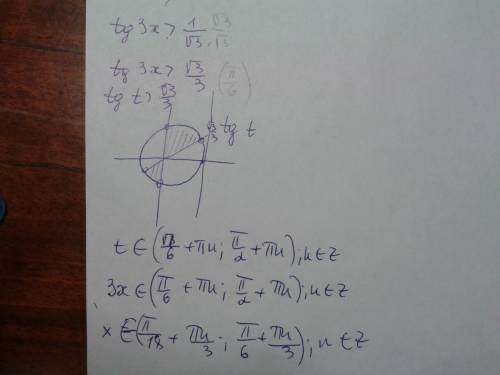 tg 3x > 1/√3 · √3/√3
tg 3x > √3/3 (π/6)
tg t > √3/3
√3/3 tg t
t ∈ (π/6 + πn; π/2 + πn); n ∈ Z
3x ∈ (π/6 + πn; π/2 + πn); n ∈ Z
x ∈ (π/18 + πn/3; π/6 + πn/3); n ∈ Z